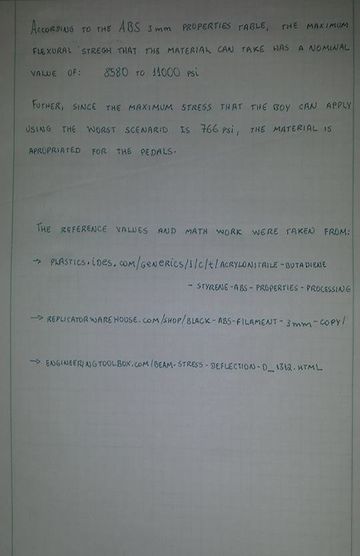 ACCORDING TO THE ABS 3mm PROPERTIES TABLE, THE MAXIMUM
FLEXURAL STREGH THAT THE MATERIAL CAN TAKE HAS A NOMINAL
VALUE OF: 8580 TO 11000 psi
FUTHER, SINCE THE MAXIMUM STRESS THAT THE BOY CAN APPLY
USING THE WORST SCENARIO IS 766 psi, THE MATERIAL IS
APROPRIATED FOR THE PEDALS.
THE REFERENCE VALUES AND MATH WORK WERE TAKEN FROM:
→ PLASTICS.ides.com/generics/1/c/t/ACRYLONITRILE-BUTADIENE
-STYRENE-ABS-PROPERTIES-PROCESSING
→ REPLICATORWAREHOUSE.COM/SHOP/BLACK-ABS-FILAMENT-3mm-COPY/
→ ENGINEERINGTOOLBOX.COM/BEAM-STRESS-DEFLECTION-D_1312.HTML